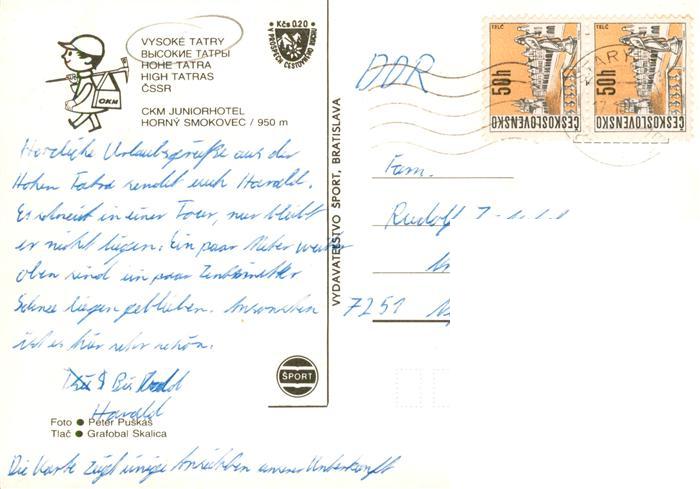 Kčs 0.20
V PRODEJI CESTOVNÉHO RUCHU
VYSOKÉ TATRY
ВЫСОКИЕ ТАТРЫ
HOHE TATRA
HIGH TATRAS
ČSSR
CKM
CKM JUNIORHOTEL
HORNÝ SMOKOVEC / 950 m
Herzliche Urlaubsgrüße aus der
Hohen Tatra sendet euch Harald.
Es schneit in einer Tour, nur bleibt
er nicht liegen. Ein paar Meter weiter
oben sind ein paar Zentimeter
Schnee liegen geblieben. Ansonsten
ist es hier sehr schön.
Bis bald
Harald
Foto ● Peter Puškáš
Tlač ● Grafobal Skalica
Die Karte zeigt einige Ansichten unserer Unterkunft
VYDAVATEĽSTVO ŠPORT, BRATISLAVA
ŠPORT
DDR
TELČ
50h
ČESKOSLOVENSKO
TELČ
50h
ČESKOSLOVENSKO
Fam.
Rudolf
7251